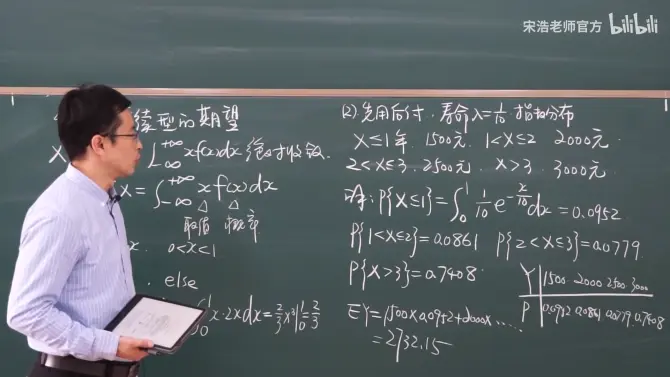 宋浩老师官方 bilibili
续型的期望
∫_{-∞}^{+∞} xf(x)dx 绝对收敛.
X = ∫_{-∞}^{+∞} x f(x) dx
取值 概率
0<x<1
, else
∫_0^1 x·2x dx = 2/3 x³|_0^1 = 2/3
(2) 先用后付. 寿命 λ=1/10 指数分布
X≤1年, 1500元. 1<X≤2 2000元.
2<X≤3. 2500元. X>3. 3000元.
P{X≤1} = ∫_0^1 1/10 e^{-x/10} dx = 0.0952
P{1<X≤2}=0.0861 P{2<X≤3}=0.0779.
P{X>3}=0.7408.
Y 1500. 2000 2500. 3000
P 0.0952 0.0861. 0.0779. 0.7408
EY=1500×0.0952+2000×....
=2732.15